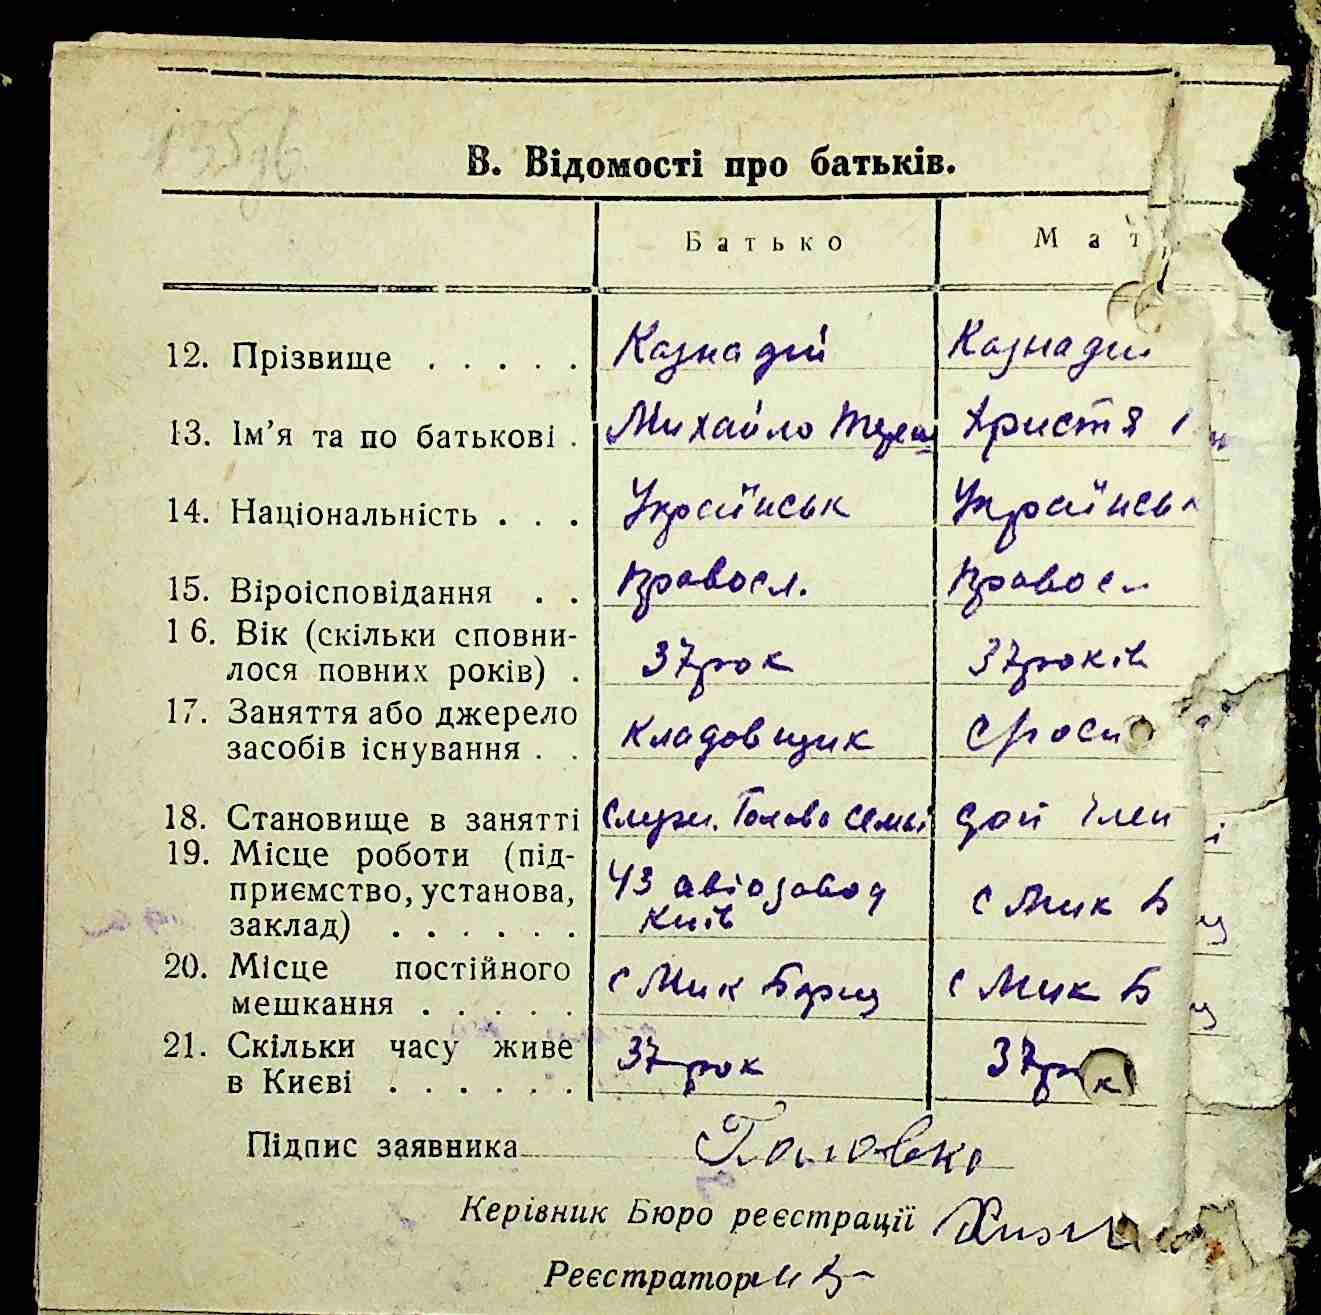 В. Відомості про батьків.
Батько Мат
12. Прізвище . . . . . Казнадій Казнадій
13. Ім’я та по батькові . Михайло Терен Христя
14. Національність . . . Українськ Українськ
15. Віроісповідання . . Правосл. Правосл
16. Вік (скільки сповни-
лося повних років) . 37 рок 37 років
17. Заняття або джерело
засобів існування . . Кладовщик
18. Становище в занятті Служ. Голова семьі член
19. Місце роботи (під-
приємство, установа,
заклад) . . . . . . 43 авіозавод Київ с Мик Б
20. Місце постійного
мешкання . . . . . с Мик Борщ с Мик Б
21. Скільки часу живе
в Києві . . . . . . 37 рок 37 рок
Підпис заявника Головко
Керівник Бюро реєстрації
Реєстратор